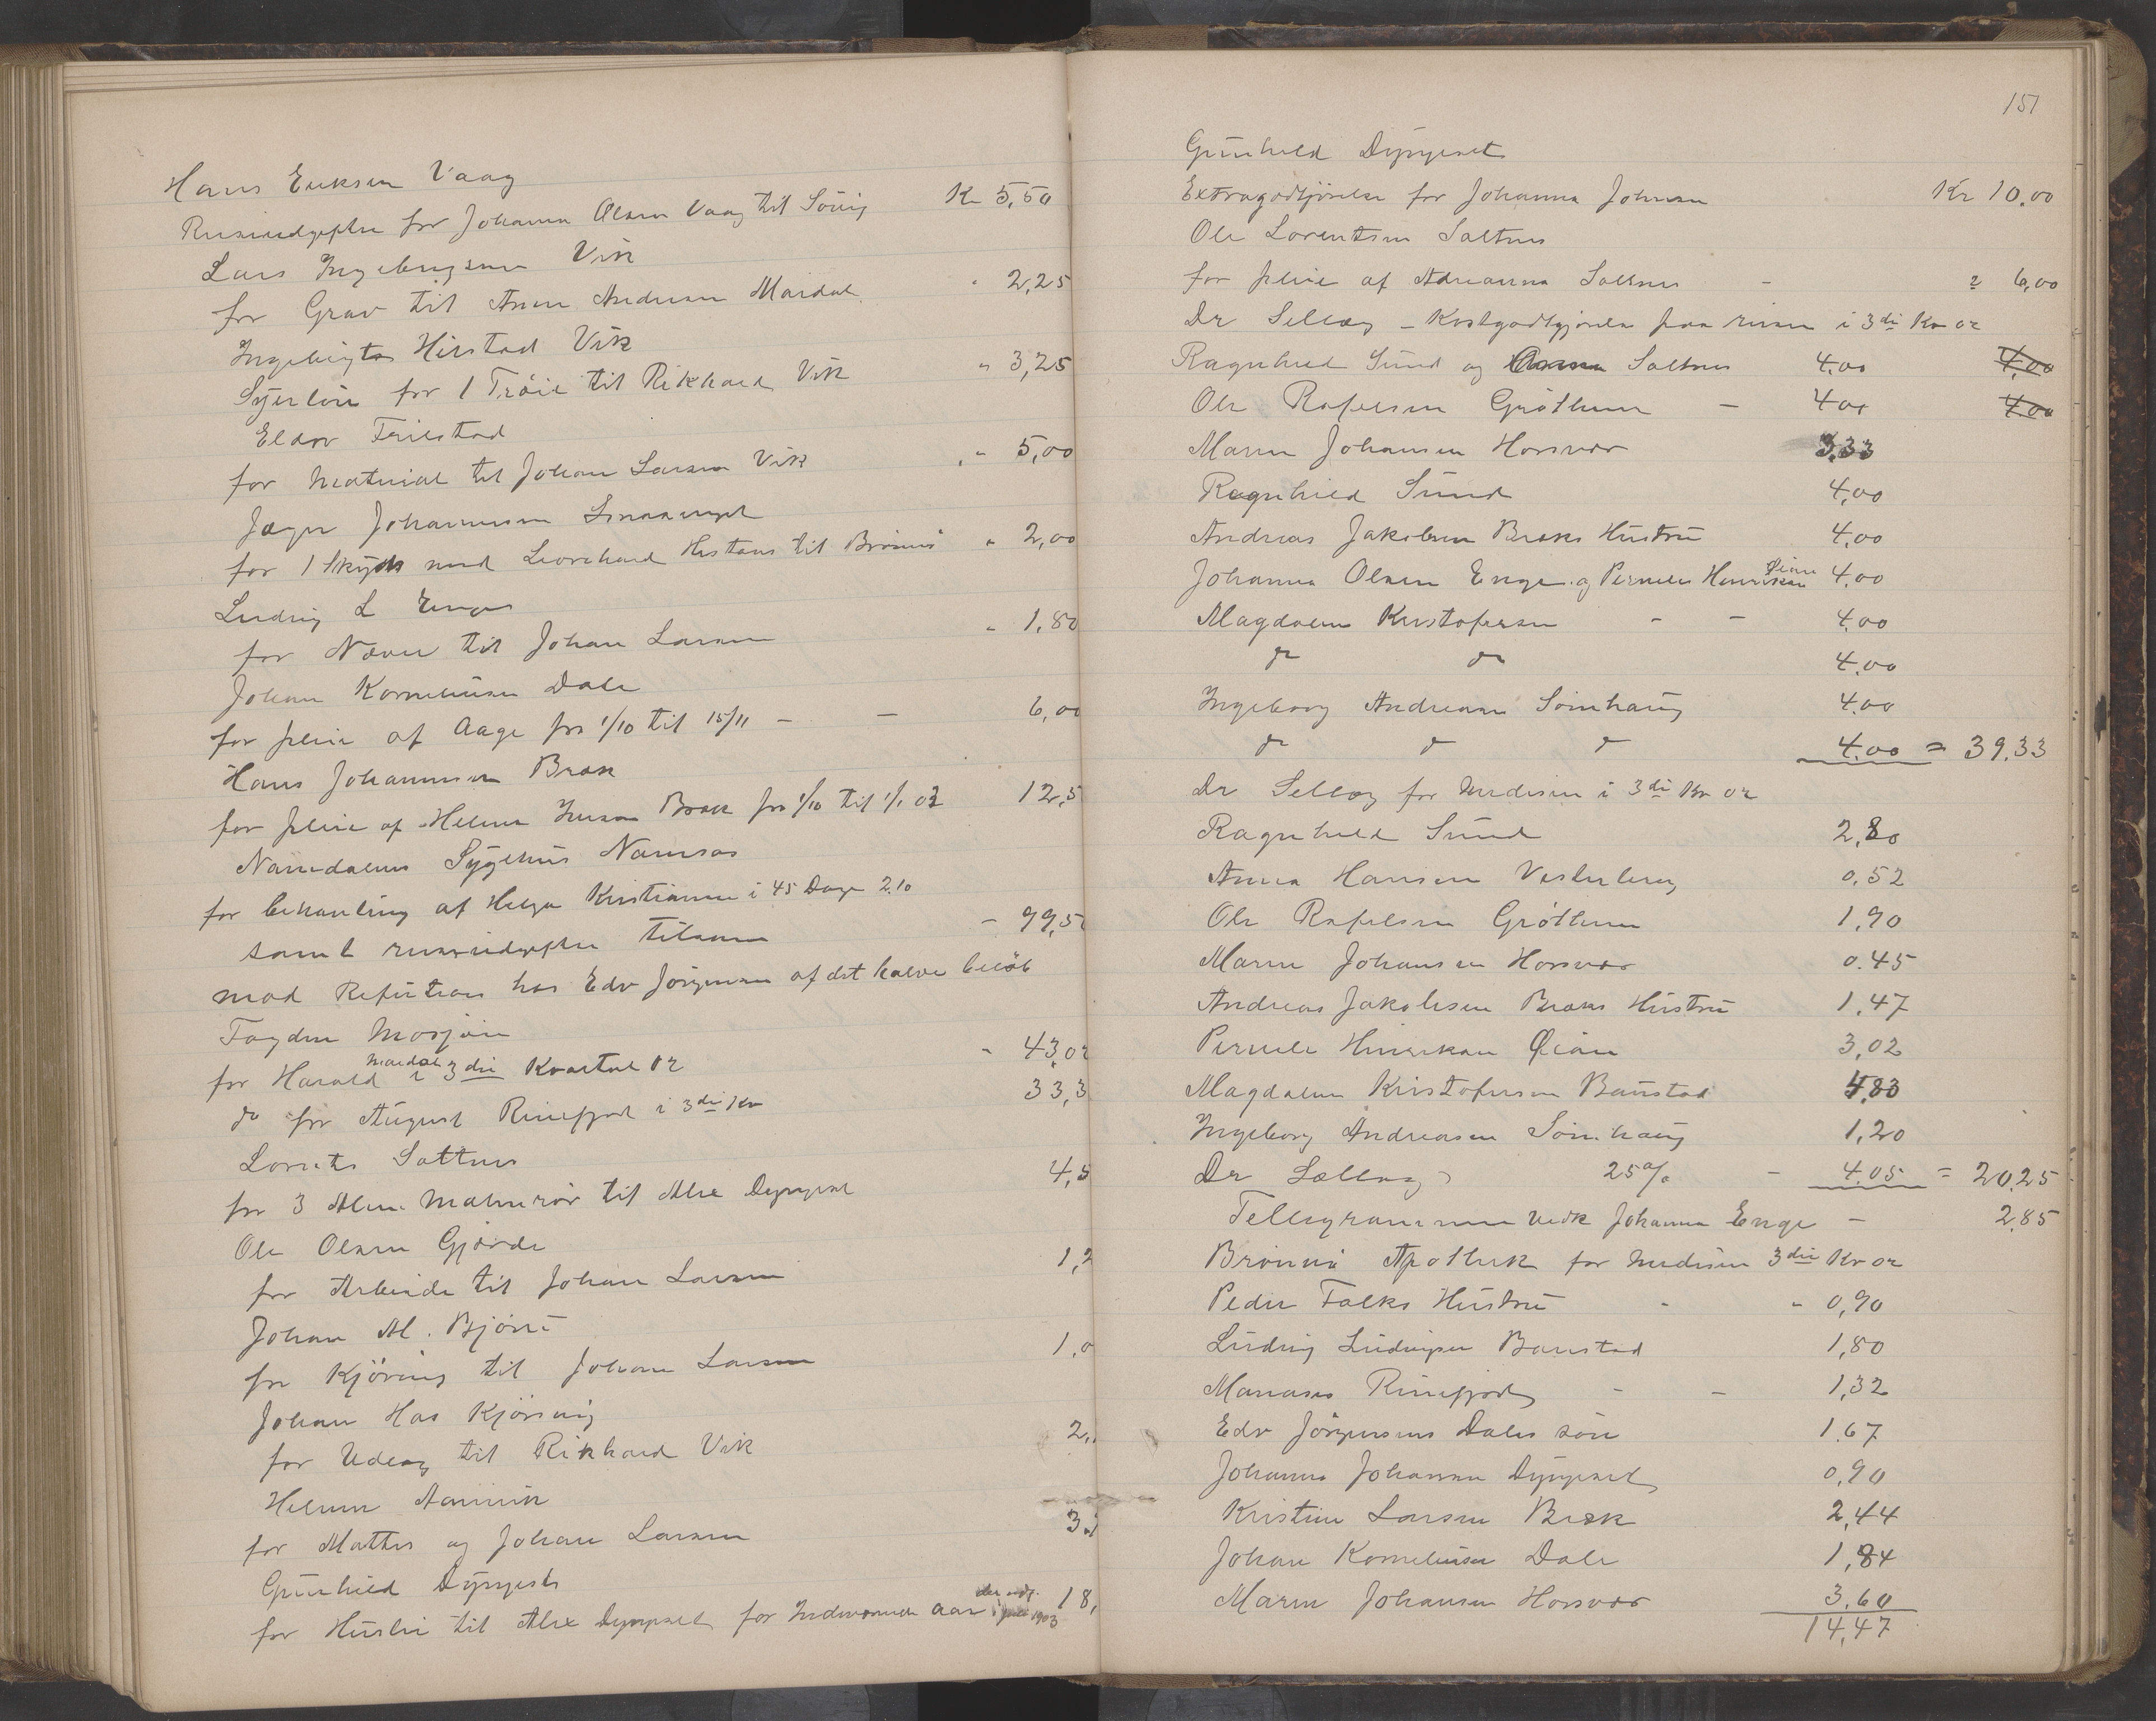 Hans Eriksen Vaag
Reiseudgifter for Johanna Olsen Vaag til Sömig Kr 5,50
Lars Ingebrigtsen Vik
for Grav til Anne Andersen Mardal " 2,25
Ingebrigt Hilstad Vik
Syerløn for 1 Tröie til Rikhard Vik " 3,25
Eldor Trilstad
for Material til Johan Larsen Vik " 5,00
Jæger Johannesen
for 1 Skyds med Leonhard Hestnes til Brönnö " 2,00
Ludvig L Enge
for Næver til Johan Larsen " 1,80
Johan Korneliusen Dale
for pleie af Aage fra 1/10 til 15/11 — — 6,00
Hans Johannesen Bræk
for pleie af Helene Iversen Bræk fra 1/10 til 1/1 03 12,5
Namdalens Sygehus Namsos
for behanling af Helga Kristiansen i 45 Dage 2.10
samt reiseudgifter tilsamen - 99,50
mod Refution hos Edv Jörgensen af det halve belöb
Fogden Mosjöen
for Harald Mardal i 3die Kvartal 02 - 43,02
do for August Rinefjord i 3die Kv 33,3
Lornts Saltnes
for 3 Alen Malmrör til Alex Dypingset 4,5
Ole Olsen Gjærde
for Arbeide til Johan Larsen 1,2
Johan M. Björn
for Kjöring til Johan Larsen 1,0
Johan Has Kjörsvig
for Udlæg til Rikhard Vik 2,
Helmer Aarnvik
for Mattis og Johan Larsen 3.
Gunhild Dypingset
for Husleie til Alex Dypingset for Indeværende aar 18,
151
Gunhild Dypingset
Extragodtjörelse for Johanna Johnsen Kr 10.00
Ole Lorentsen Saltnes
for pleie af Adrianna Saltnes - " 6,00
Dr Selleg – Kostgodtgjörelse paa reiser i 3die Kv 02
Ragnhild Sund og Anna Saltnes 4,00 4,00
Ole Rafelsen Gröttum — 4,00 4,00
Maren Johansen Horsvær 3,33
Ragnhild Sund 4,00
Andreas Jakobsen Bræks Hustru 4,00
Johanna Olsen Enge og Pernele Henriksen Öian 4,00
Magdalena Kristofersen - - 4,00
do do 4,00
Ingeborg Andreasen Sömhaug 4.00
do do do 4.00 = 39,33
Dr Selleg for Medisin i 3die Kv 02
Ragnhild Sund 2,80
Anna Hansen Vesterberg 0.52
Ole Rafelsen Gröttum 1,90
Maren Johansen Horsvær 0.45
Andreas Jakobsen Bræks Hustru 1,47
Pernele Hinrikson Öian 3,02
Magdalena Kristofersen Baustad 4,83
Ingeborg Andreasen Sömhaug 1,20
Dr Selleg 25% - 4.05 = 20,25
Tellegrammer vedk Johanna Enge - 2,85
Brönnö Apothek for Medisin 3die Kv 02
Peder Falks Hustru - " 0,90
Ludvig Ludvigsen Baustad 1,80
Manases Rinefjord - - 1,32
Edv Jörgensens Dales sön 1.67
Johanna Johansen Dypingset 0,90
Kristine Larsen Bræk 2,44
Johan Korneliusen Dale 1,84
Maren Johansen Horsvær 3,60
14,47